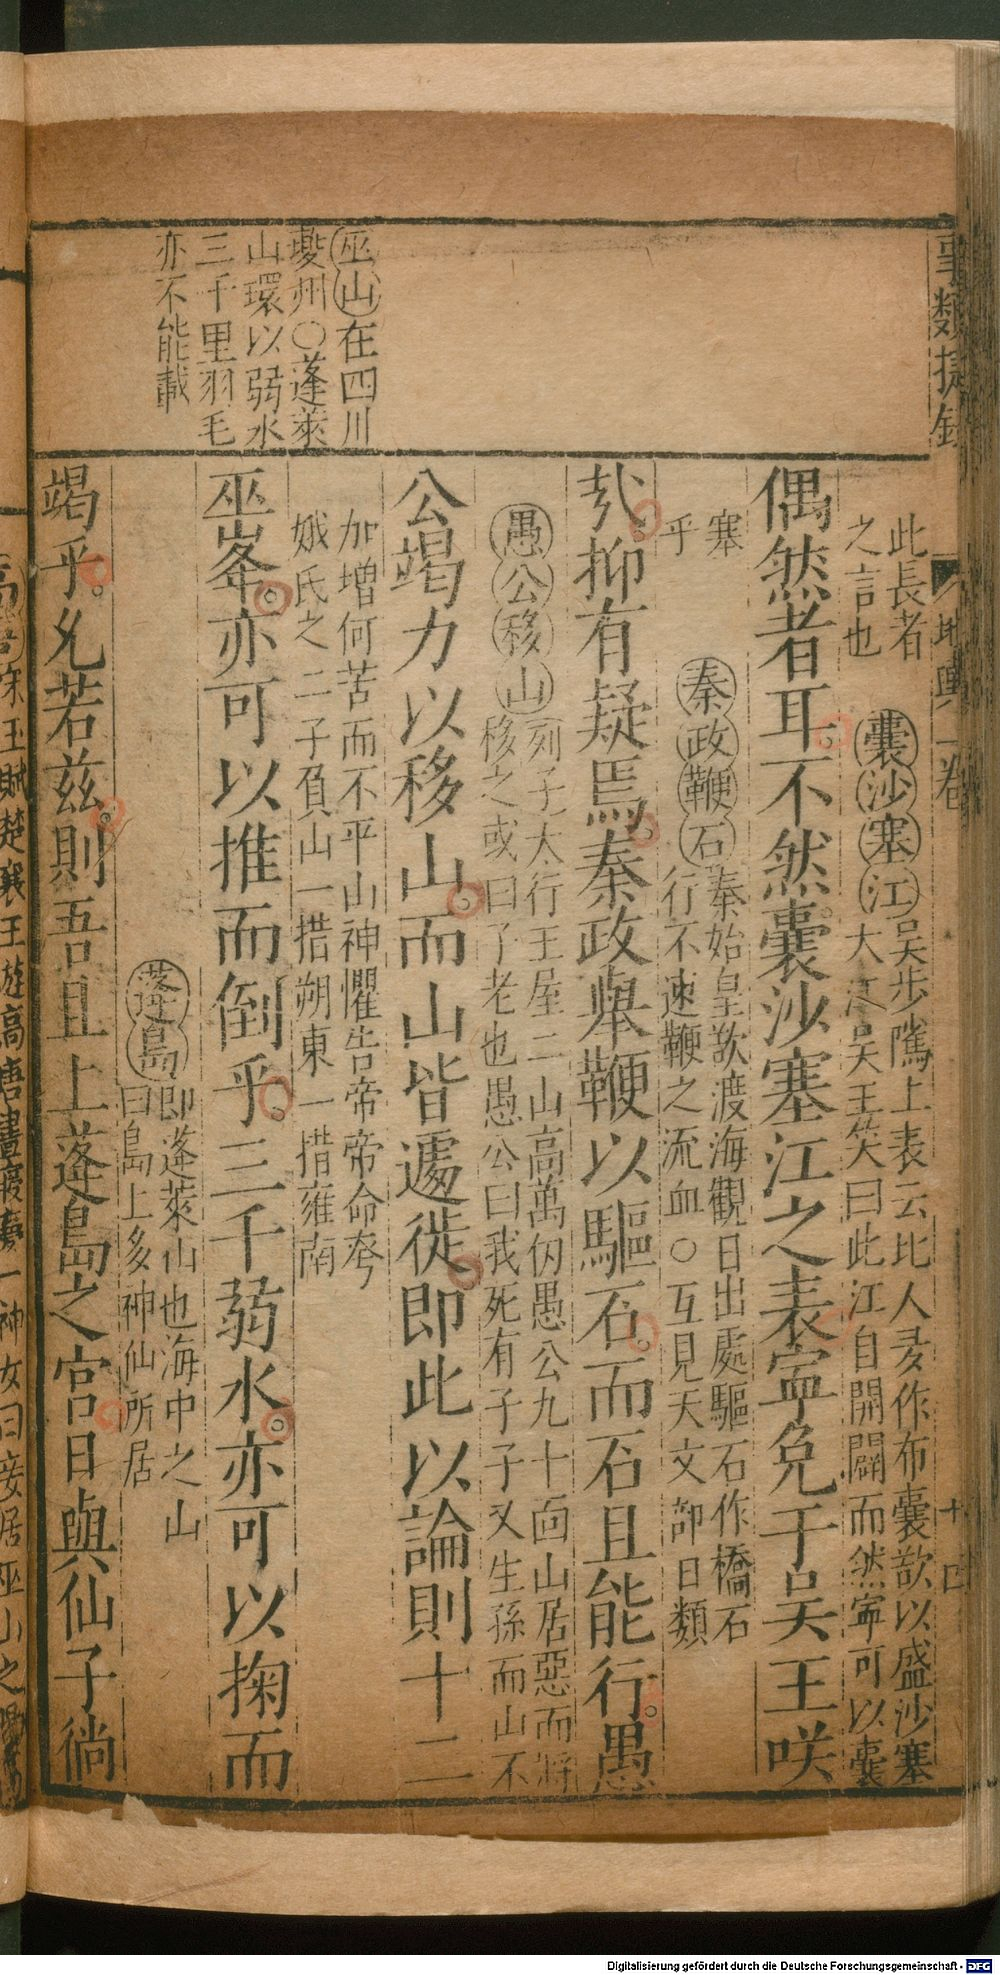 事類捷錄
地輿一卷
十四
巫山在四川
夔州○蓬萊
山環以弱水
三千里羽毛
亦不能載
此長者
之言也
囊沙塞江
吳步隲上表云北人欲作布囊欲以盛沙塞
大江吳王笑曰此江自開闢而然寕可以囊
偶然者耳不然囊沙塞江之表寕免于吴王咲
塞
乎
秦政鞭石
秦始皇欲渡海觀日出處驅石作橋石
行不速鞭之流血○互見天文部日類
㢤抑有疑焉秦政舉鞭以驅石而石且能行愚
愚公移山
列子太行王屋二山高萬仭愚公九十面山居惡而將
移之或曰子老也愚公曰我死有子子又生孫而山不
公竭力以移山而山皆遽徙即此以論則十二
加增何苦而不平山神懼告帝帝命夸
娥氏之二子負山一措朔東一措雍南
巫峯亦可以推而倒乎三千弱水亦可以掬而
蓬島
即蓬萊山也海中之山
曰島上多神仙所居
竭乎凡若茲則吾且上蓬島之宮日與仙子徜
宋玉賦楚襄王遊高唐晝寢夢一神女曰妾居巫山之陽
Digitalisierung gefördert durch die Deutsche Forschungsgemeinschaft - DFG